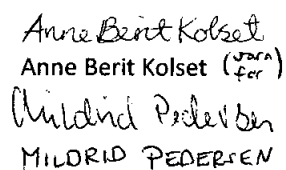 Anne Berit Kolset
Anne Berit Kolset (vara for)
Mildrid Pedersen
MILDRID PEDERSEN